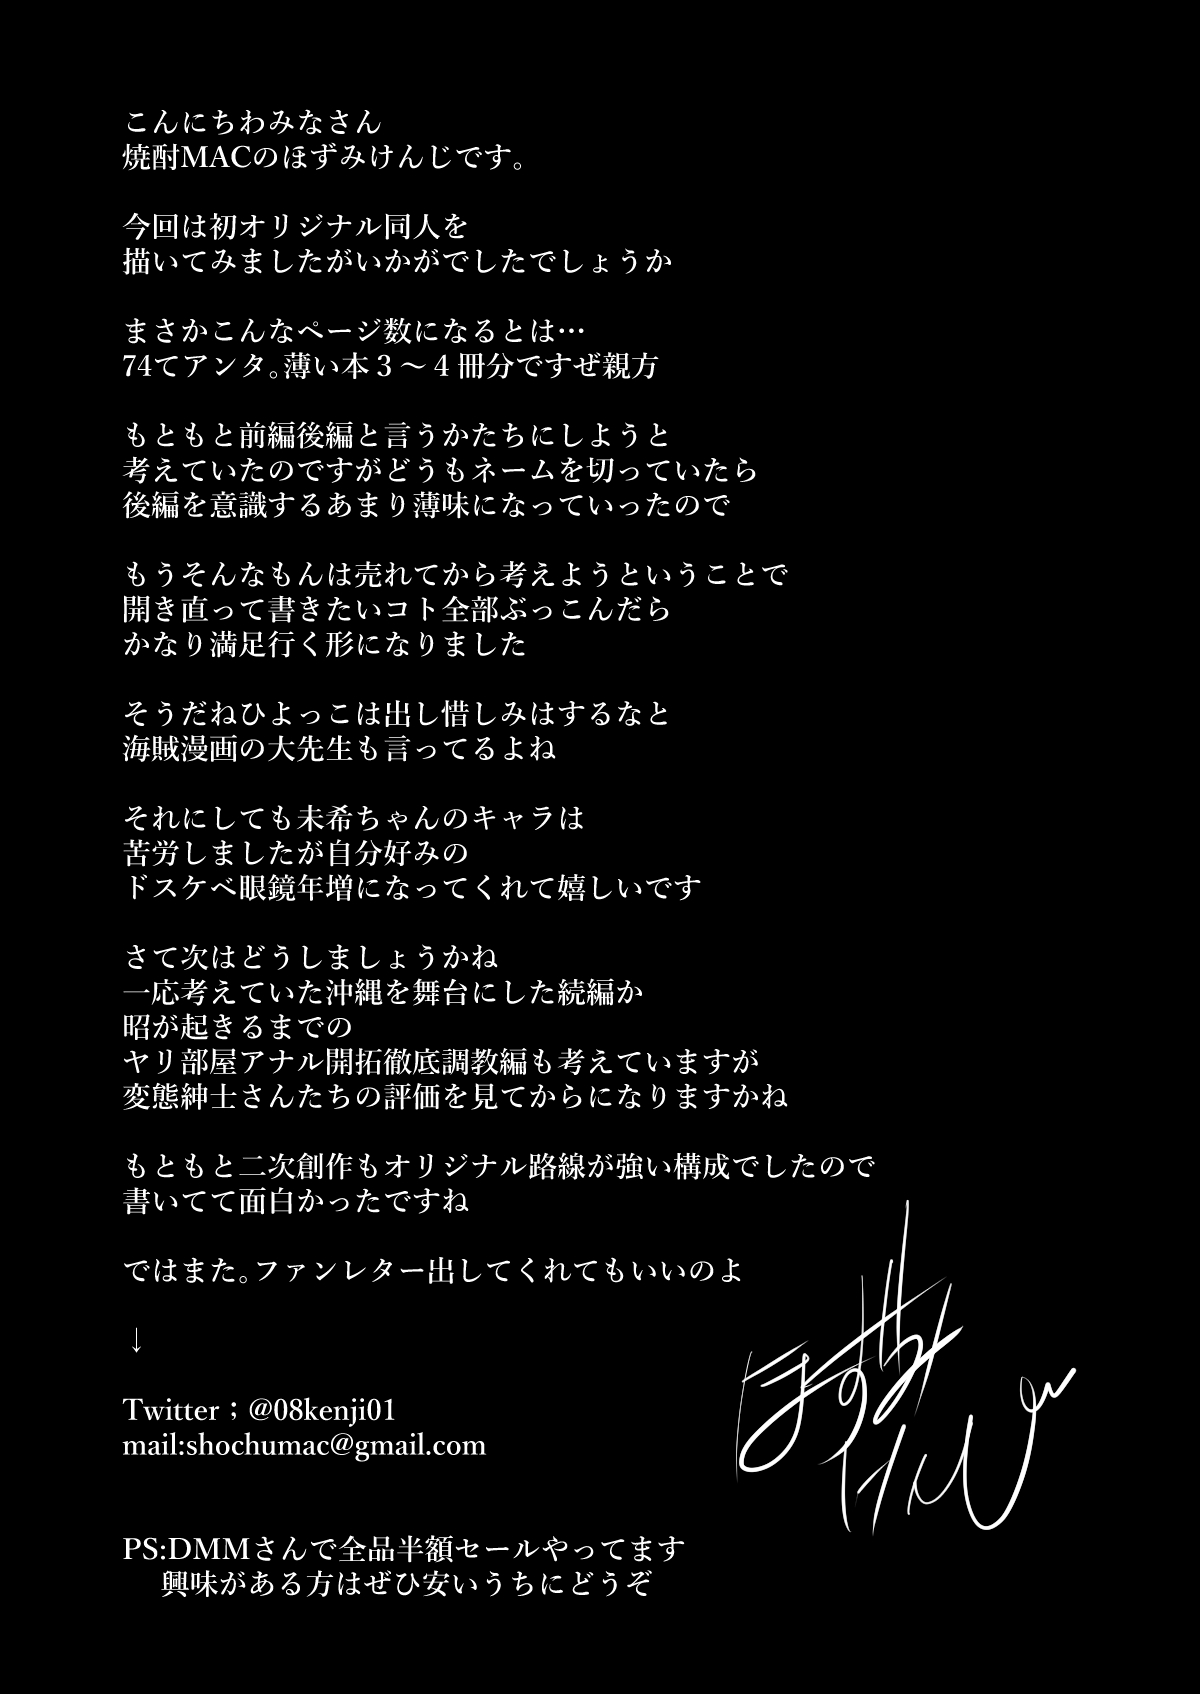 こんにちわみなさん
焼酎MACのほずみけんじです。
今回は初オリジナル同人を
描いてみましたがいかがでしたでしょうか
まさかこんなページ数になるとは…
74てアンタ。薄い本３～４冊分ですぜ親方
もともと前編後編と言うかたちにしようと
考えていたのですがどうもネームを切っていたら
後編を意識するあまり薄味になっていったので
もうそんなもんは売れてから考えようということで
開き直って書きたいコト全部ぶっこんだら
かなり満足行く形になりました
そうだねひよっこは出し惜しみはするなと
海賊漫画の大先生も言ってるよね
それにしても未希ちゃんのキャラは
苦労しましたが自分好みの
ドスケベ眼鏡年増になってくれて嬉しいです
さて次はどうしましょうかね
一応考えていた沖縄を舞台にした続編か
昭が起きるまでの
ヤリ部屋アナル開拓徹底調教編も考えていますが
変態紳士さんたちの評価を見てからになりますかね
もともと二次創作もオリジナル路線が強い構成でしたので
書いてて面白かったですね
ではまた。ファンレター出してくれてもいいのよ
↓
Twitter；@08kenji01
mail:shochumac@gmail.com
ほずみ
けんじ
PS:DMMさんで全品半額セールやってます
興味がある方はぜひ安いうちにどうぞ